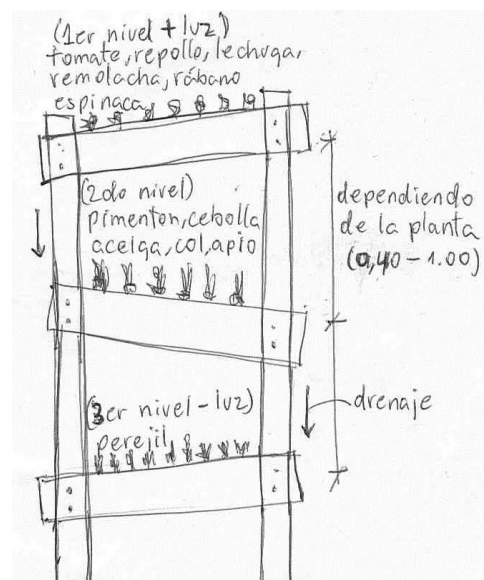 (1er nivel + luz)
tomate, repollo, lechuga,
remolacha, rábano
espinaca
(2do nivel)
pimenton, cebolla
acelga, col, apio
dependiendo
de la planta
(0,40 - 1.00)
(3er nivel - luz)
perejil
drenaje